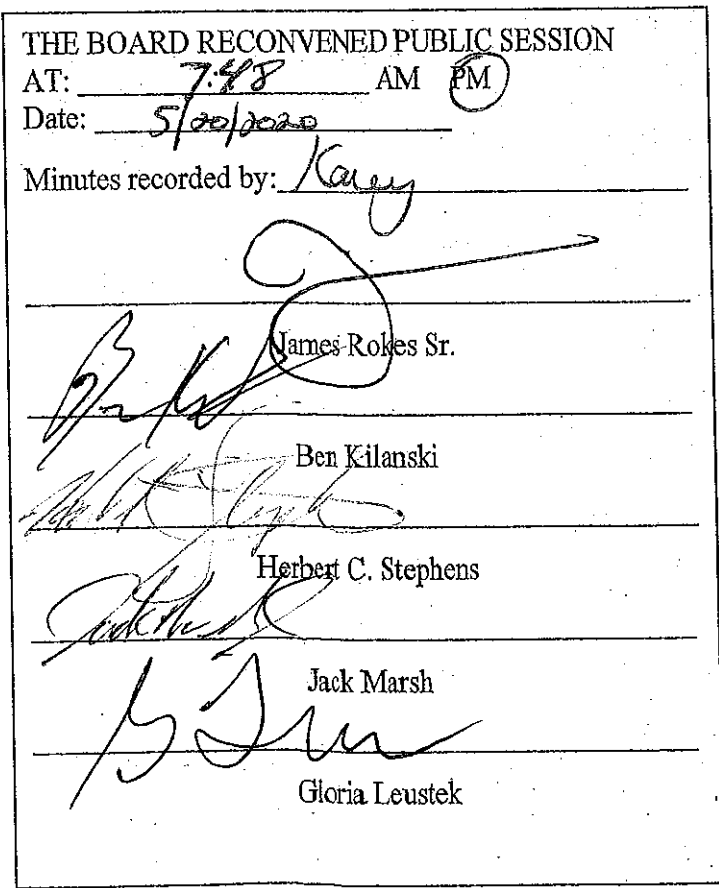 THE BOARD RECONVENED PUBLIC SESSION
AT: 7:48 AM PM
Date: 5/20/2020
Minutes recorded by:
James Rokes Sr.
Ben Kilanski
Herbert C. Stephens
Jack Marsh
Gloria Leustek